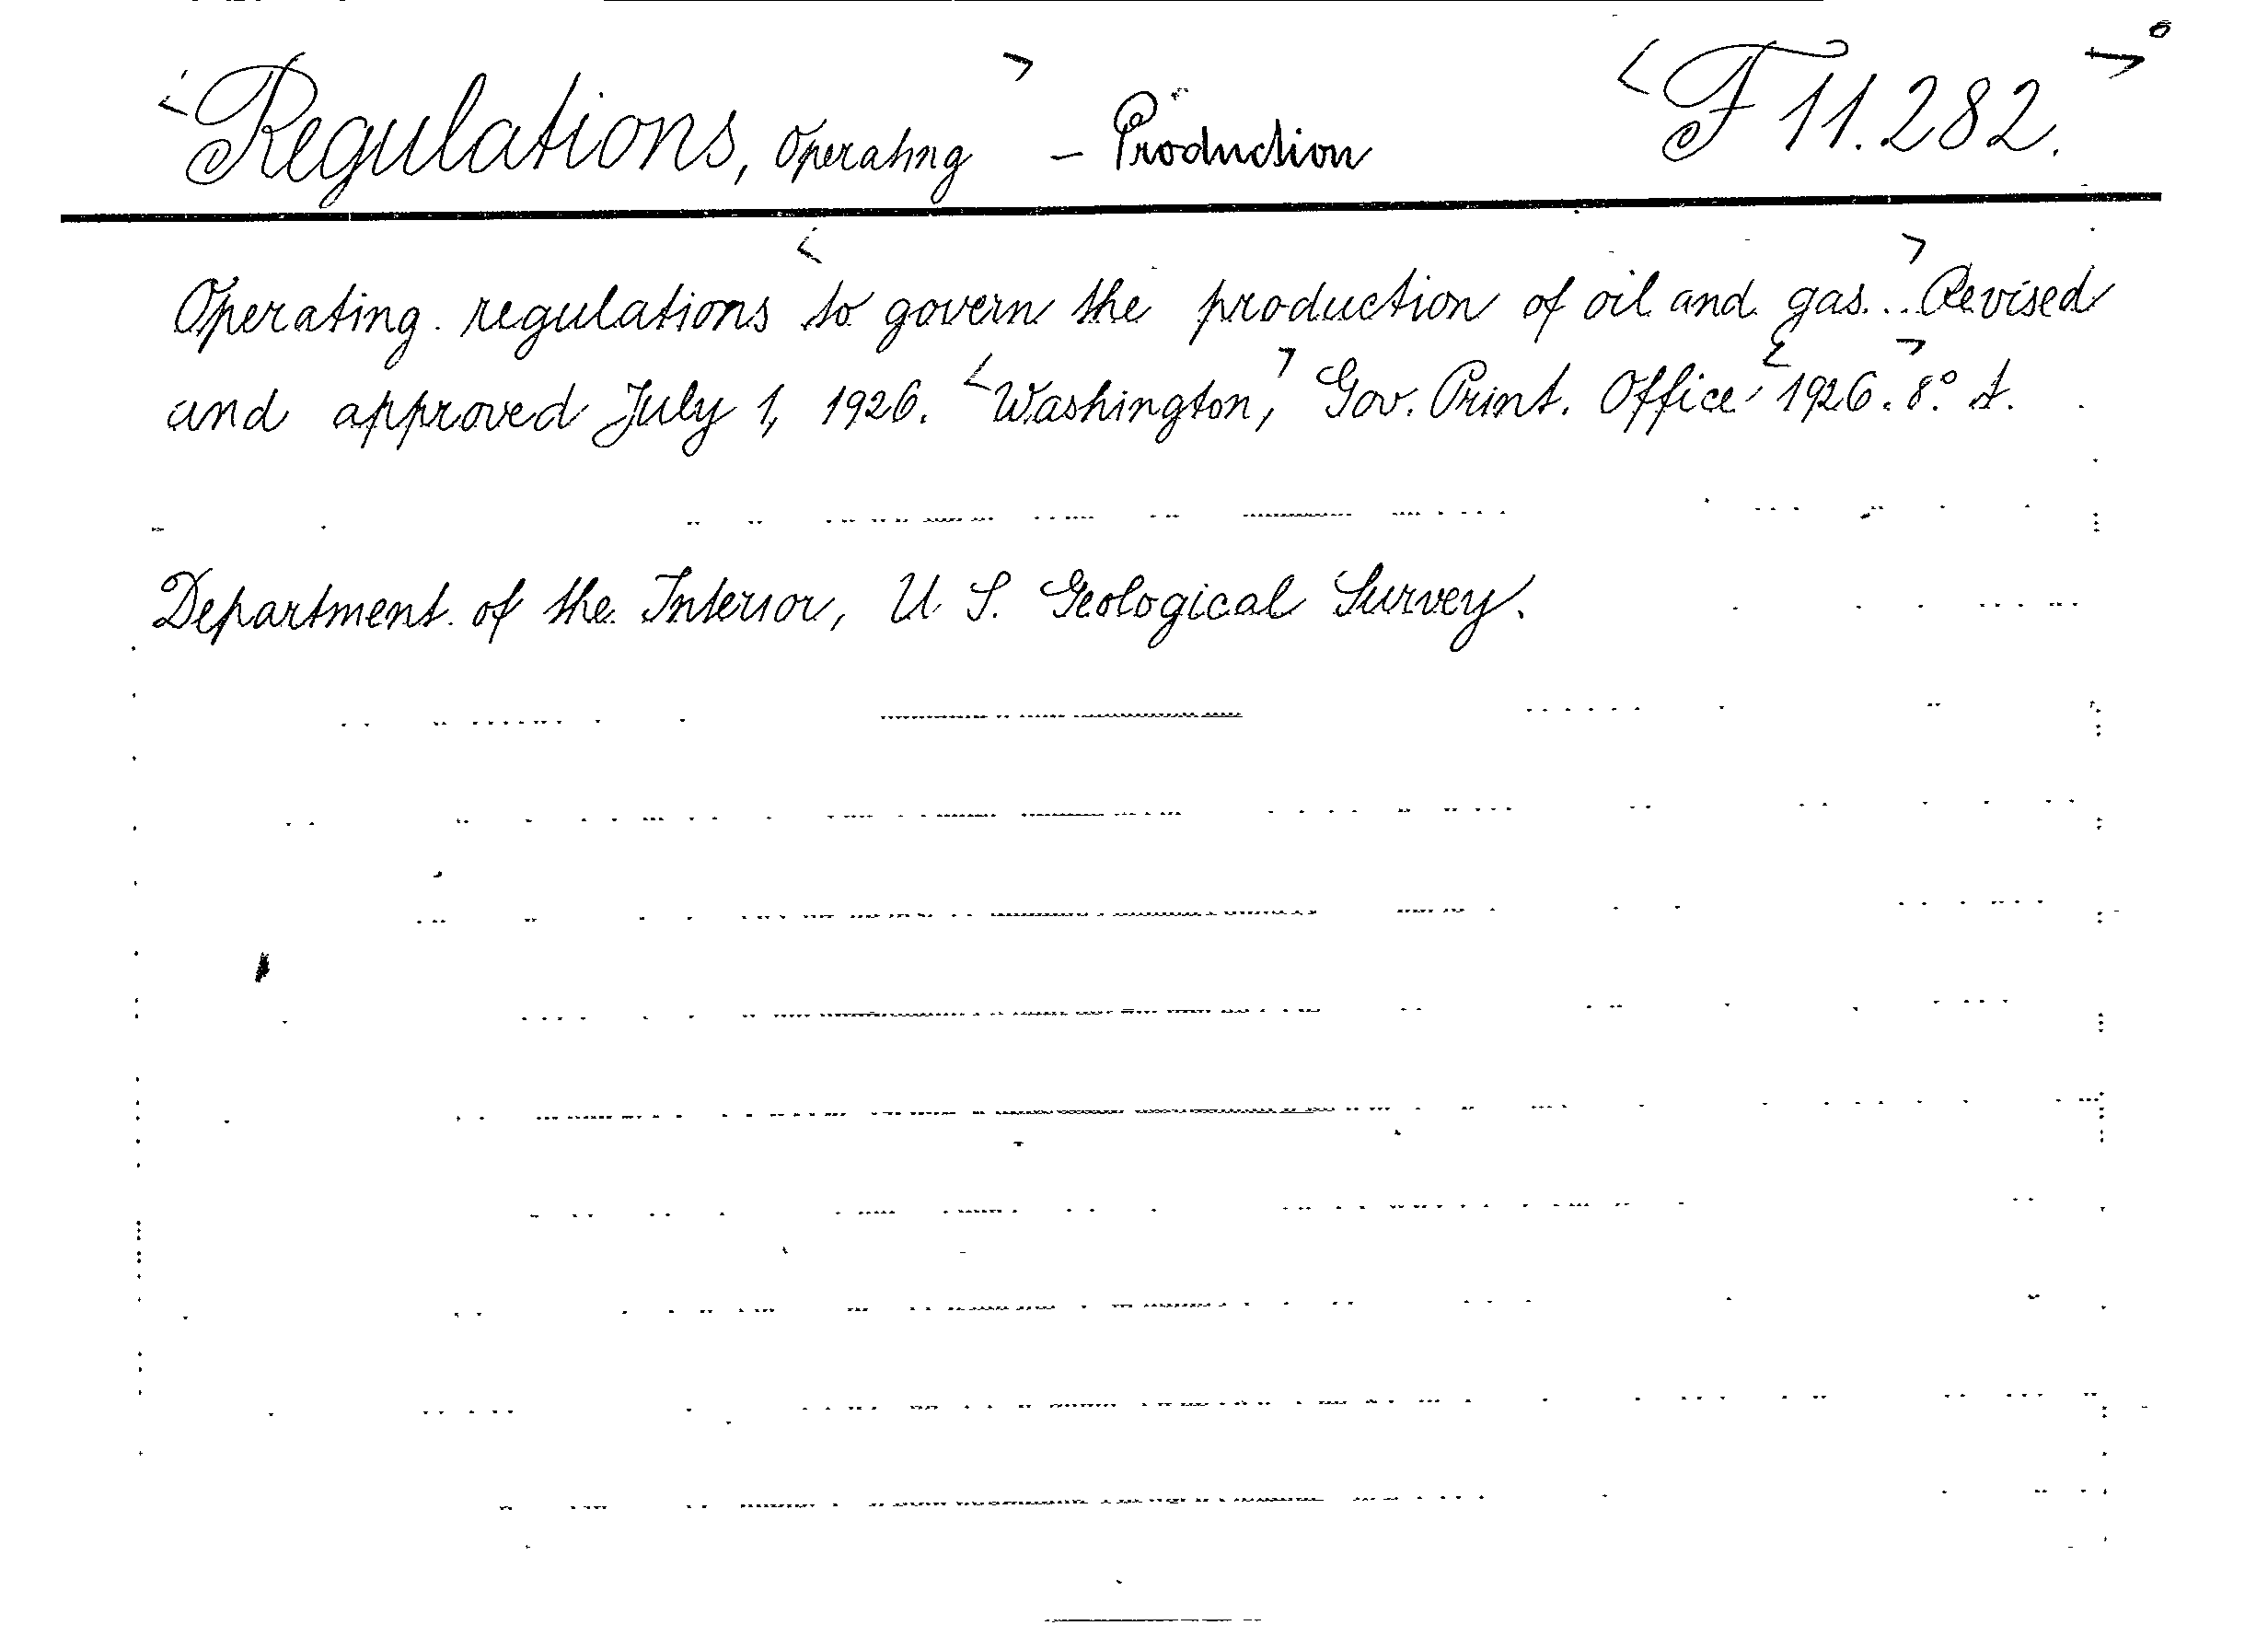 <Regulations, Operating> – Production <F 11.282.>
Operating regulations <to govern the production of oil and gas...> Revised
and approved July 1, 1926. <Washington,> Gov. Print. Office <1926.> 8° t.
Department of the Interior, U. S. Geological Survey.